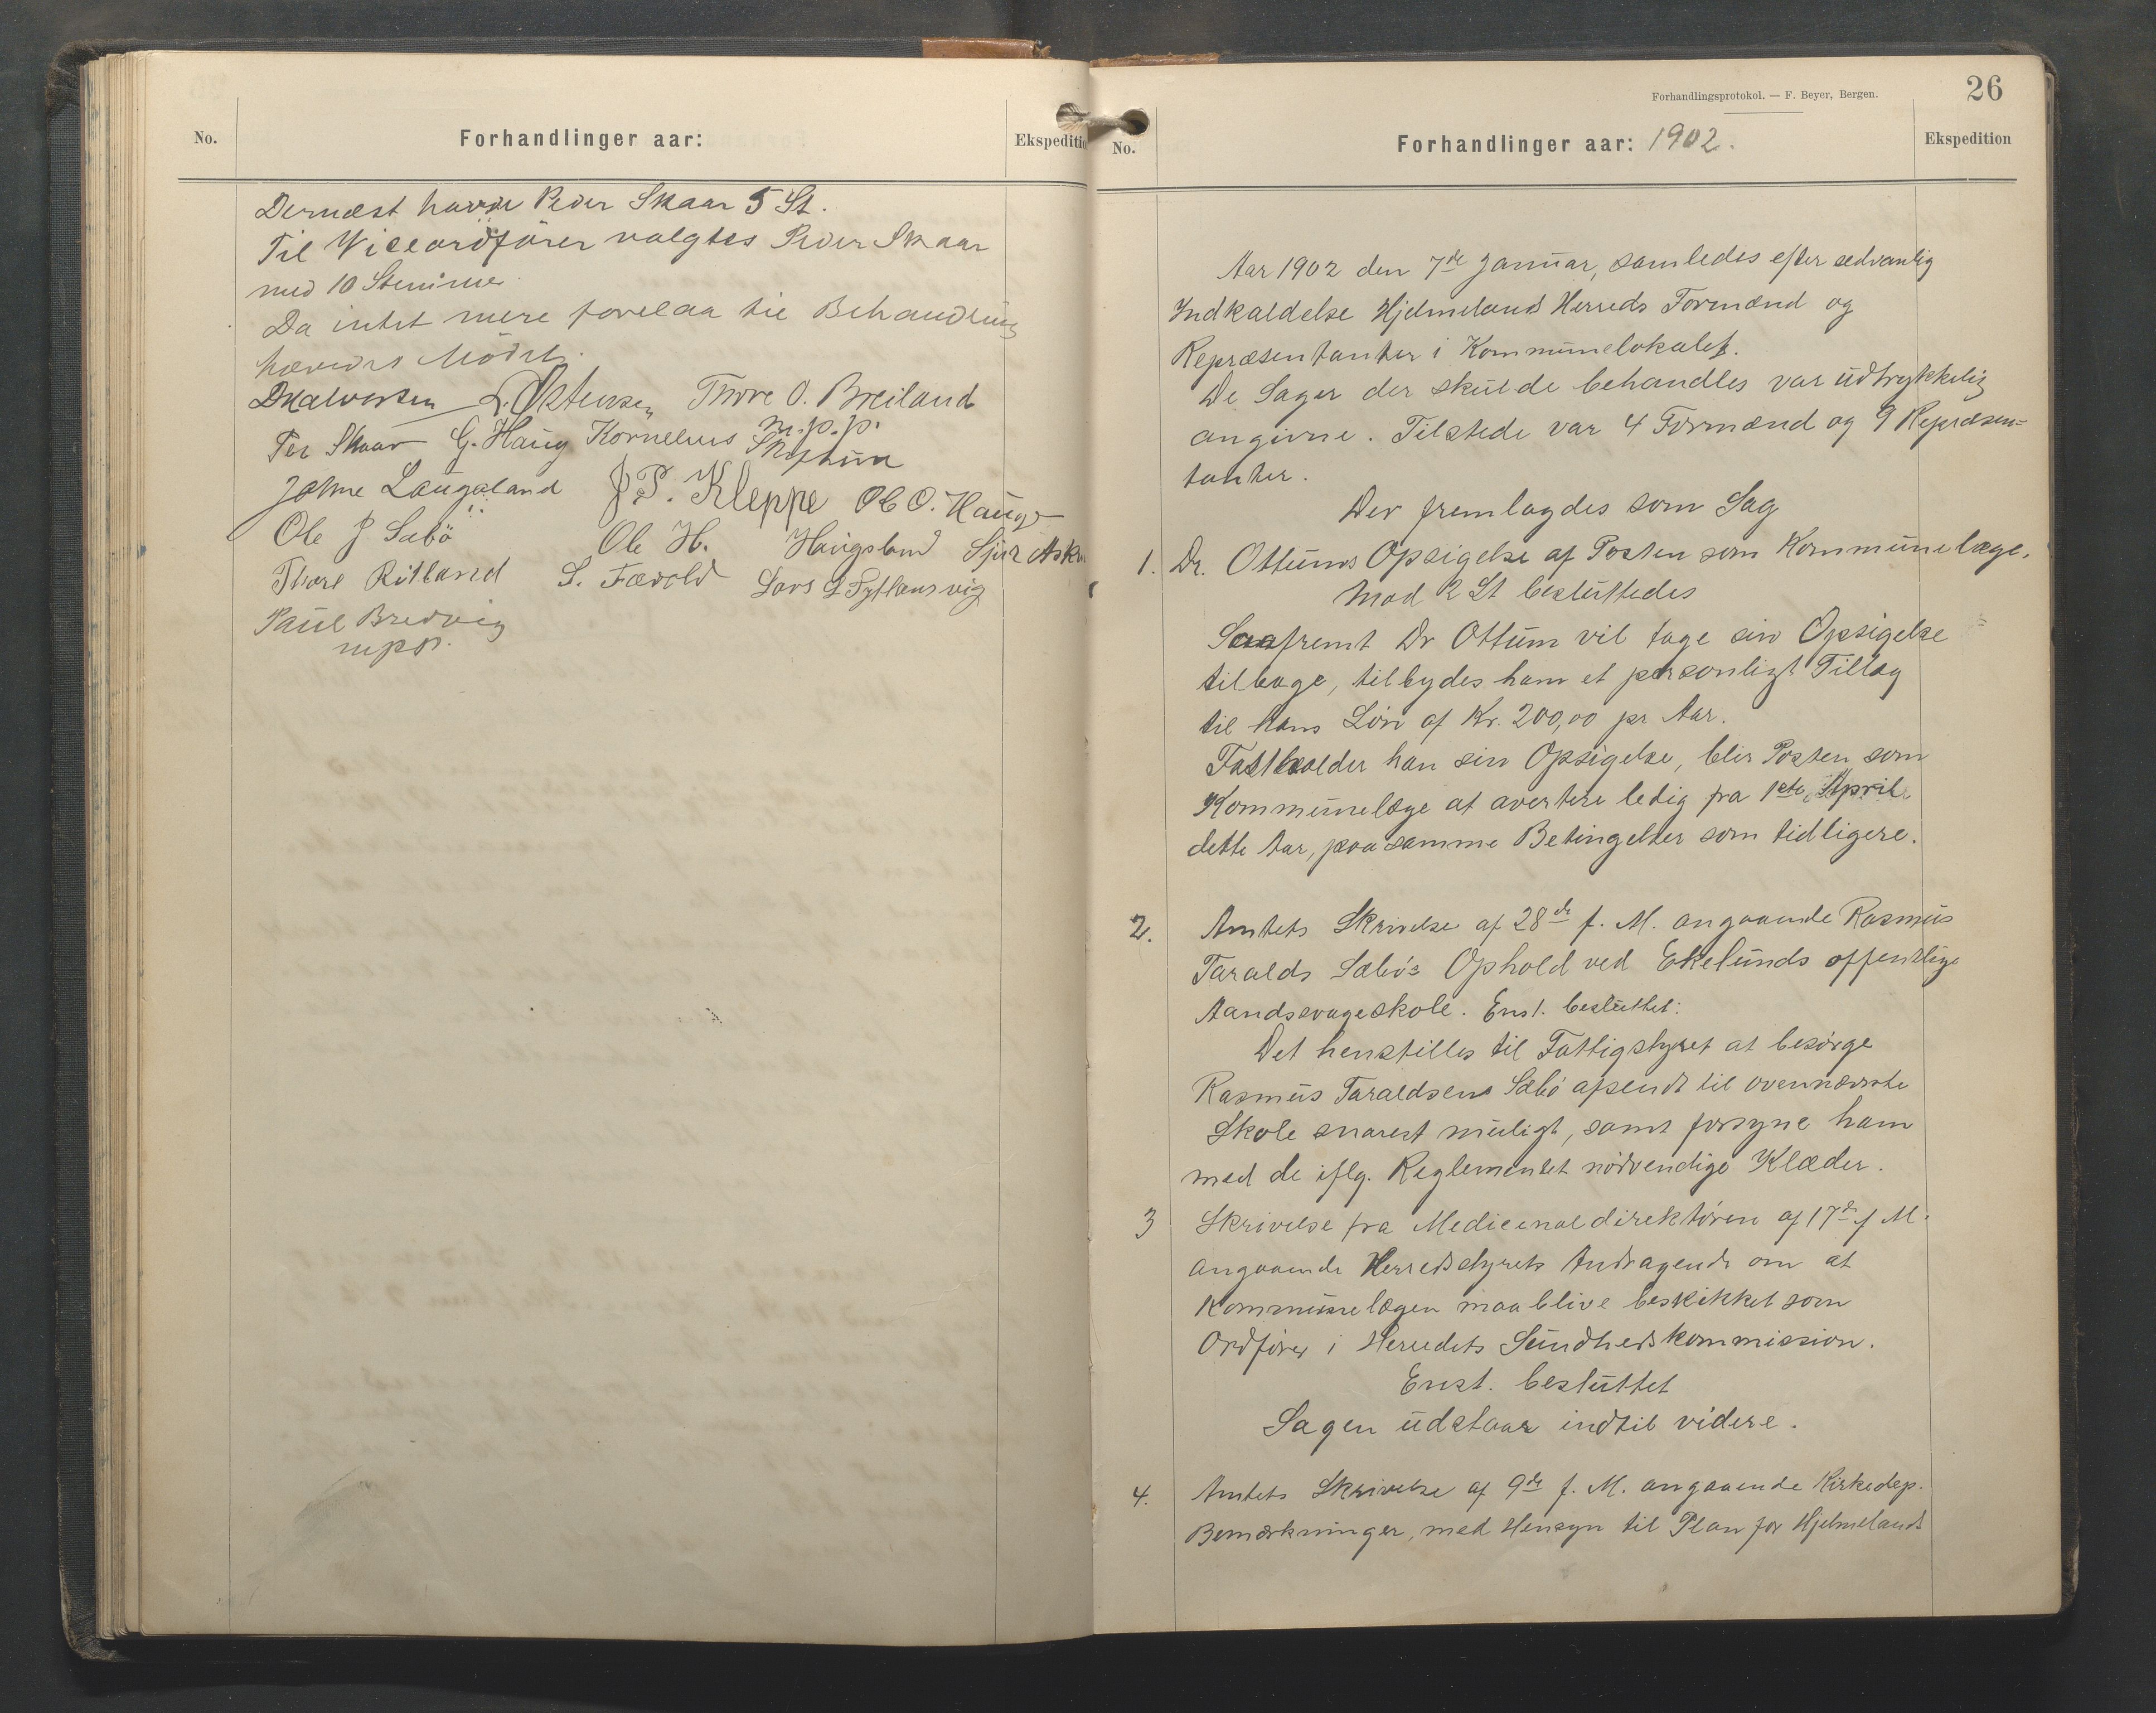 No.
Forhandlinger aar:
Ekspeditio
Dernæst havde Peder Skaar 5 St.
Til Viceordfører valgtes Peder Skaar
med 10 Stemme
Da intet mere forelaa til Behandling
hævedes Mödet.
DHalvorsen L. Østensen Thore O. Breiland
m.p.p.
Per Skaar G. Haug Kornelius
Johne Laugaland J P. Kleppe Ole O. Hauge
Ole J Sæbö Ole H. Haugsland Sjur Askv
Thore Riskand S. Fævold Lars L Fyllansvig
Paul Bredvig
mpp.
Forhandlingsprotokol. — F. Beyer, Bergen.
26
No.
Forhandlinger aar: 1902.
Ekspedition
Aar 1902 den 7de Januar, samledes efter sedvanlig
Indkaldelse Hjelmelands Herreds Formænd og
Repræsentanter i Kommunelokalet.
De Sager der skulde behandles var udtrykkelig
angivne. Tilstede var 4 Formænd og 9 Repræsen=
tanter.
Der fremlagdes som Sag
1. Dr. Ottums Opsigelse af Posten som Kommunelæge.
Mod 2 St besluttedes
Saafremt Dr Ottum vil tage sin Opsigelse
tilbage, tilbydes ham et personligt Tillæg
til hans Løn af Kr. 200,00 pr Aar.
Fastholder han sin Opsigelse, blir Posten som
Kommunelæge at avertere ledig fra 1ste April
dette Aar, paa samme Betingelser som tidligere.
2. Amtets Skrivelse af 28de f. M. angaaende Rasmus
Taralds Sæbø's Ophold ved Ekelunds offentlige
Aandssvageskole. Enst. besluttet:
Det henstilles til Fattigstyret at besørge
Rasmus Taraldsens Sæbø afsendt til ovennævnte
Skole snarest muligt, samt forsyne ham
med de iflg. Reglementet nødvendige Klæder.
3 Skrivelse fra Medicinaldirektøren af 17de f M.
angaaende Herredsstyrets Andragende om at
Kommunelægen maa blive beskikket som
Ordfører i Herredets Sundhedskommission.
Enst. besluttet
Sagen udstaar indtil videre.
4. Amtets Skrivelse af 9de f. M. angaaende Kirkedep.
Bemærkninger, med Hensyn til Plan for Hjelmelands